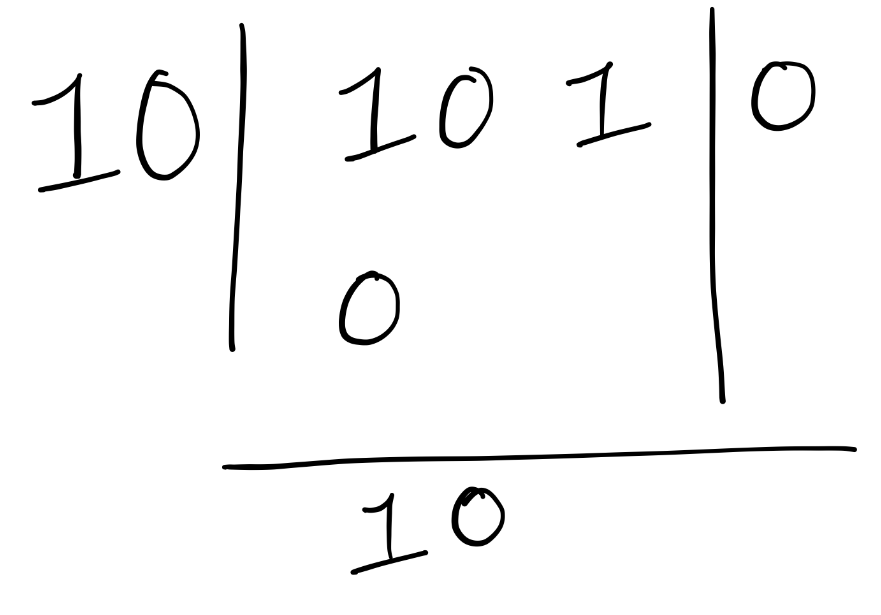 10 | 10 1 | 0
0
10